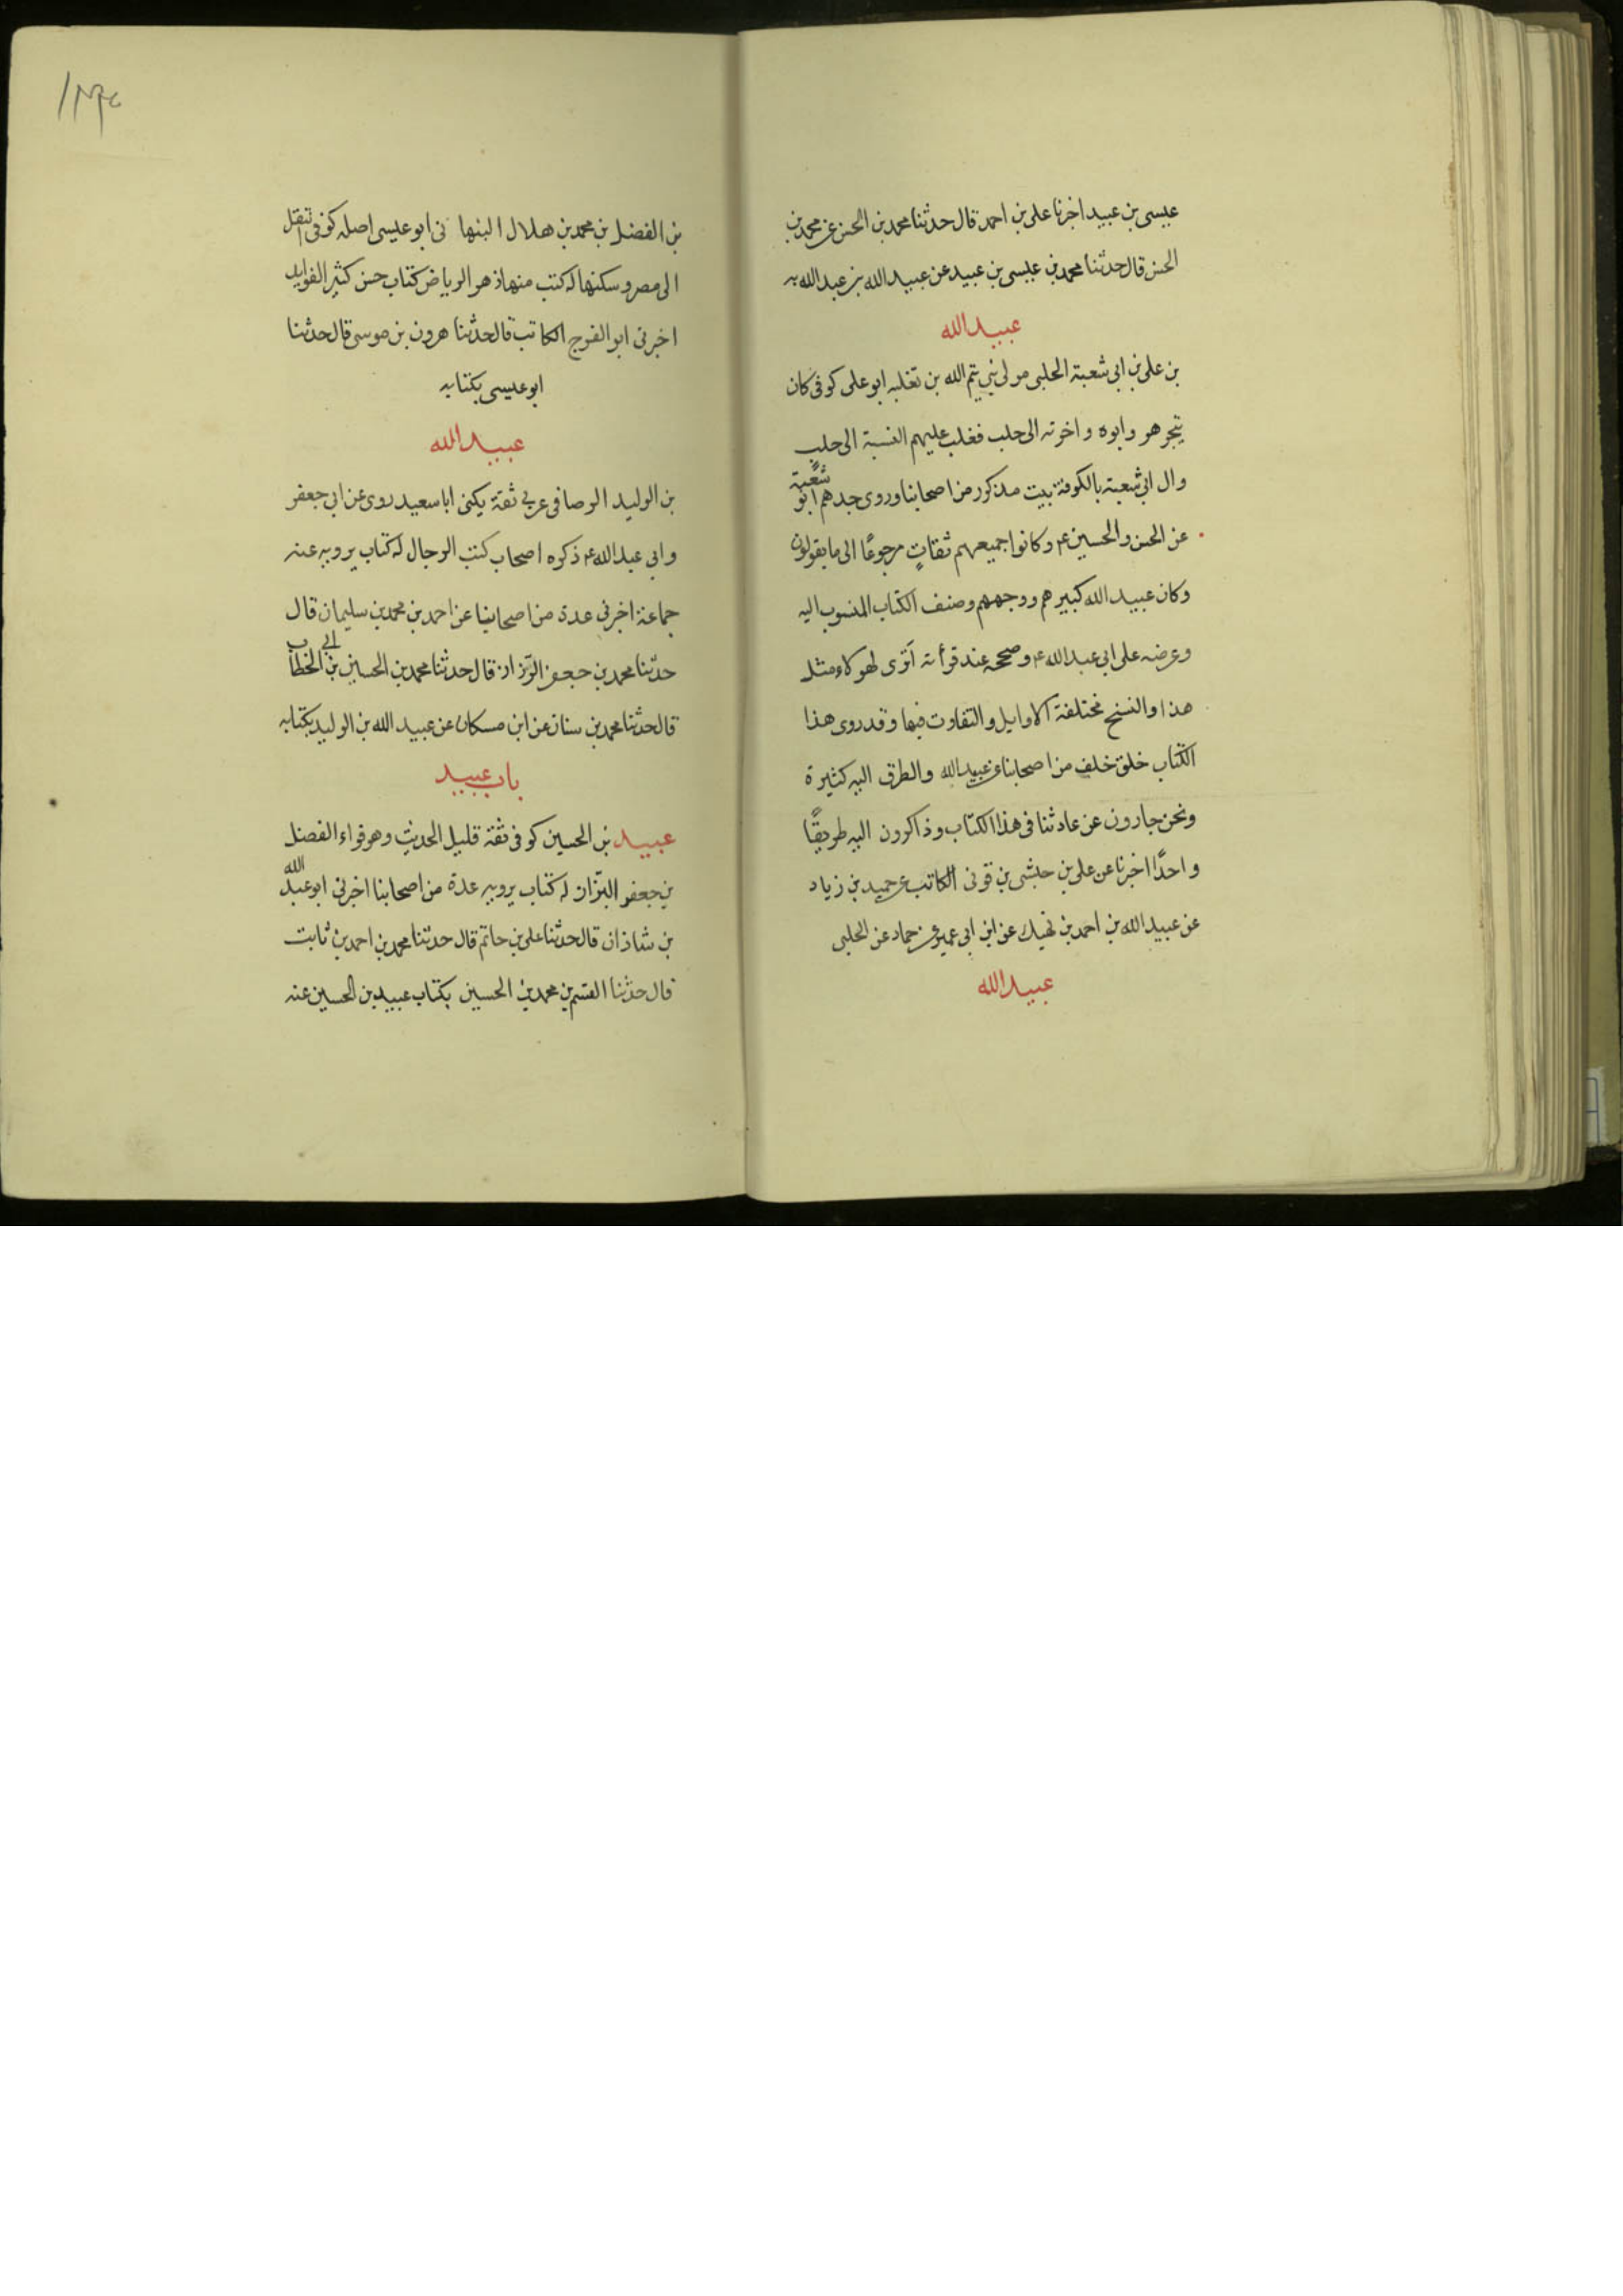 عيسى بن عبيد اخبرنا على بن احمد قال حدثنا محمد بن الحسن عن محمد بن
الحسن قال حدثنا محمد بن عيسى بن عبيد عن عبيد الله بن عبد الله به
عبيد الله
بن على بن ابى شعبة الحلبى مولى بنى تيم الله بن تغلبه ابو على كوفى كان
يتجر هو وابوه واخوته الى حلب فغلب عليهم النسبة الى حلب
وال ابى شعبة بالكوفة بيت مذكور من اصحابنا وروى جدهم ابو شعبة
عن الحسن والحسين ع وكانوا جميعهم ثقاتٍ مرجوعًا الى ما يقولون
وكان عبيد الله كبيرهم ووجههم وصنف الكتاب المنسوب اليه
وعرضه على ابى عبد الله ع وصححه عند قرأته اترى لهوكاء مثل
هذا والنسخ مختلفة الاوايل والتفاوت فيها وقد روى هذا
الكتاب خلق خلف من اصحابنا عن عبيد الله والطرق اليه كثيرة
ونحن جارون عن عادتنا فى هذا الكتاب وذاكرون اليه طريقًا
واحدًا اخبرنا عن على بن حبشى بن قونى الكاتب عن حميد بن زياد
عن عبيد الله بن احمد بن نهيك عن ابن ابى عمير عن حماد عن الحلبى
عبيد الله
بن الفضل بن محمد بن هلال النبهانى ابو عيسى اصله كوفى انتقل
الى مصر وسكنها له كتب منها زهر الرياض كتاب حسن كثير الفوايد
اخبرنى ابو الفرج الكاتب قال حدثنا هرون بن موسى قال حدثنا
ابو عيسى بكتابه
عبيد الله
بن الوليد الوصافى عربى ثقة يكنى ابا سعيد روى عن ابى جعفر
وابى عبد الله ع ذكره اصحاب كتب الرجال له كتاب يرويه عنه
جماعة اخبرنى عدة من اصحابنا عن احمد بن محمد بن سليمان قال
حدثنا محمد بن جعفر الرزاز قال حدثنا محمد بن الحسين بن ابى الخطاب
قال حدثنا محمد بن سنان عن ابن مسكان عن عبيد الله بن الوليد بكتابه
باب عبيد
عبيد بن الحسين كوفى ثقة قليل الحديث وهو قراء الفضل
بن جعفر البزان له كتاب يرويه عدة من اصحابنا اخبرنى ابو عبد الله
بن شاذان قال حدثنا على بن حاتم قال حدثنا محمد بن احمد بن ثابت
قال حدثنا القسم بن محمد بن الحسين بكتاب عبيد بن الحسين عنه